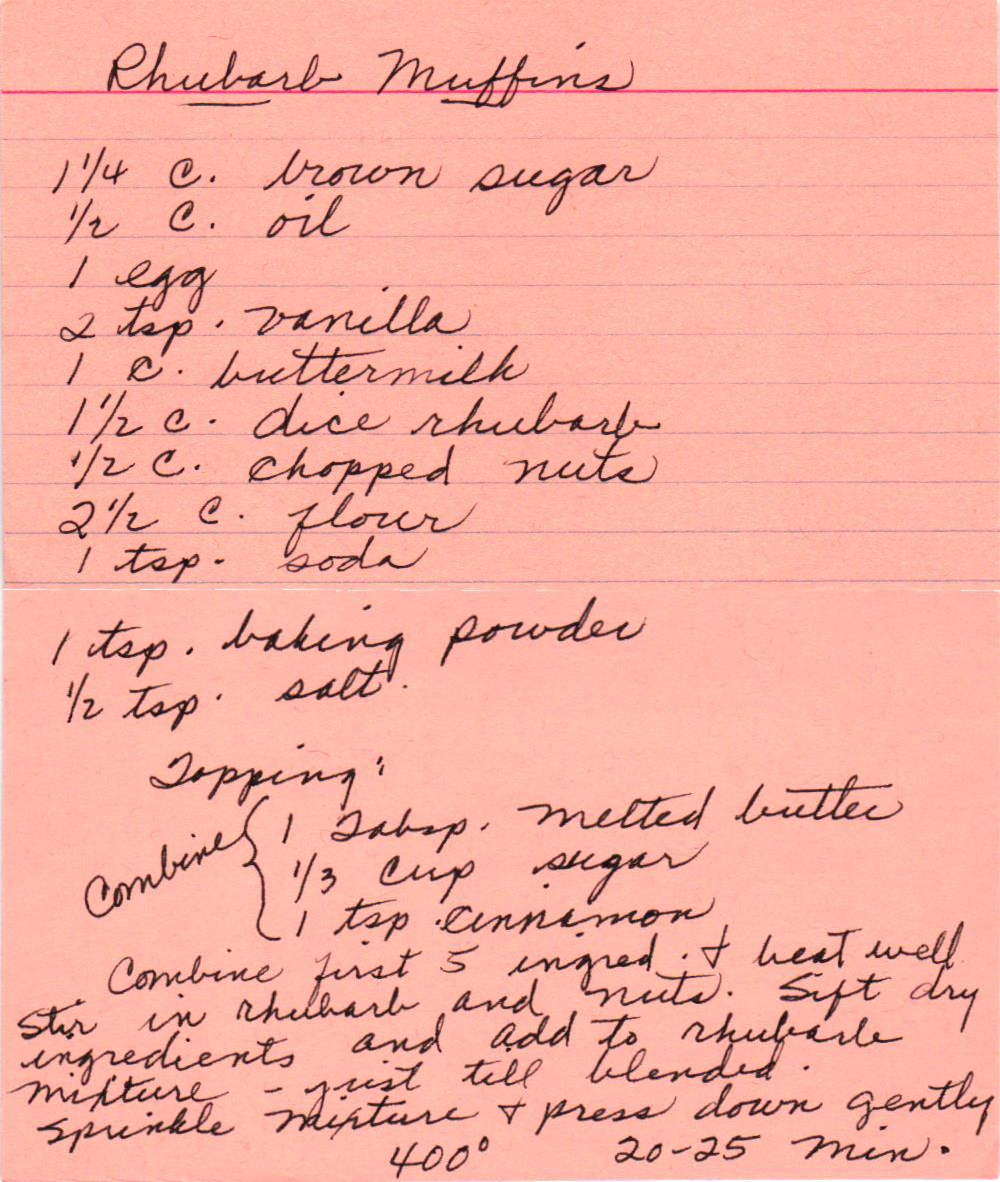 Rhubarb Muffins
1 1/4 c. brown sugar
1/2 c. oil
1 egg
2 tsp. vanilla
1 c. buttermilk
1 1/2 c. dice rhubarb
1/2 c. chopped nuts
2 1/2 c. flour
1 tsp. soda
1 tsp. baking powder
1/2 tsp. salt.
Topping:
Combine { 1 Tabsp. melted butter
1/3 cup sugar
1 tsp. cinnamon
Combine first 5 ingred. & beat well
Stir in rhubarb and nuts. Sift dry
ingredients and add to rhubarb
mixture - just till blended.
Sprinkle mixture & press down gently
400° 20-25 min.